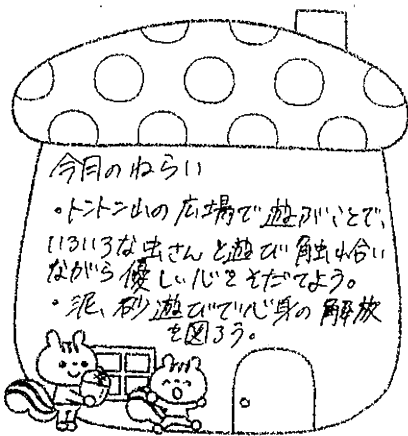 今月のねらい
・トントン山の広場で遊ぶことで、
いろいろな虫さんと遊び触れ合い
ながら優しい心をそだてよう。
・泥、砂遊びで心身の解放
を図ろう。